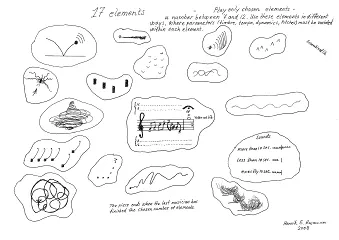 17 elements
Play only chosen elements -
a number between 7 and 12. Use these elements in different
ways, where parameters (timbre, tempo, dynamics, pitches) must be varied
within each element.
Sounds
more than 10 sec.
less than 10 sec.
exactly 10 sec.
The piece ends when the last musician has
finished the chosen number of elements.
Henrik E. Rasmussen
2008